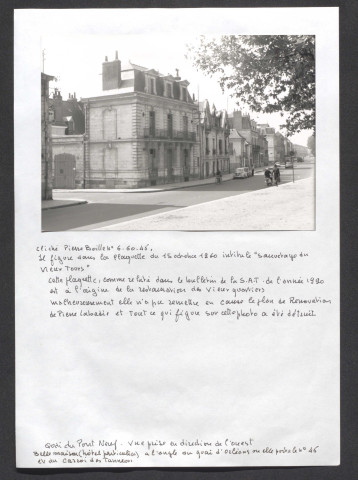 Cliché Pierre Boille n° 6.60.45,
Il figure dans la plaquette du 15 octobre 1960 intitulé "sauvetage du
Vieux Tours"
Cette plaquette, comme relaté dans le bulletin de la S.A.T. de l'année 1990
est à l'origine de la restauration des vieux quartiers
malheureusement elle n'a pu remettre en cause le plan de Rénovation
de Pierre Labadie et tout ce qui figure sur cette photo a été détruit
Quai du Pont Neuf - Vue prise en direction de l'ouest
Belle maison (hôtel particulier) à l'angle du quai d'Orléans où elle porte le n° 46
et du Carroi des Tanneurs